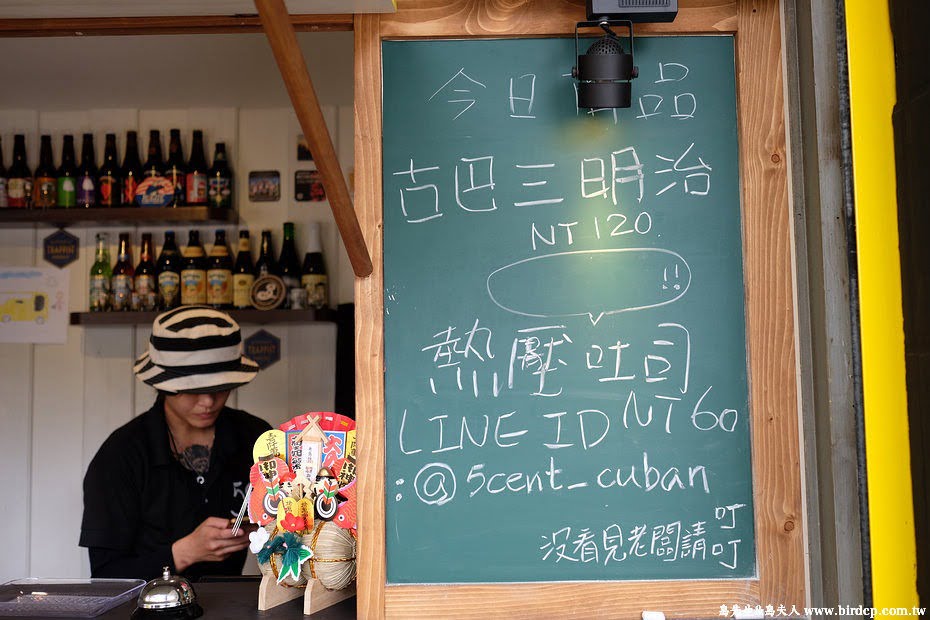 今日 品
古巴三明治
NT 120.
!!
熱壓吐司
NT 60
LINE ID
:@5cent_cuban
沒看見老闆請叮叮
TRAPPIST
TRAPPIST
鳥先生&鳥夫人 www.birdcp.com.tw